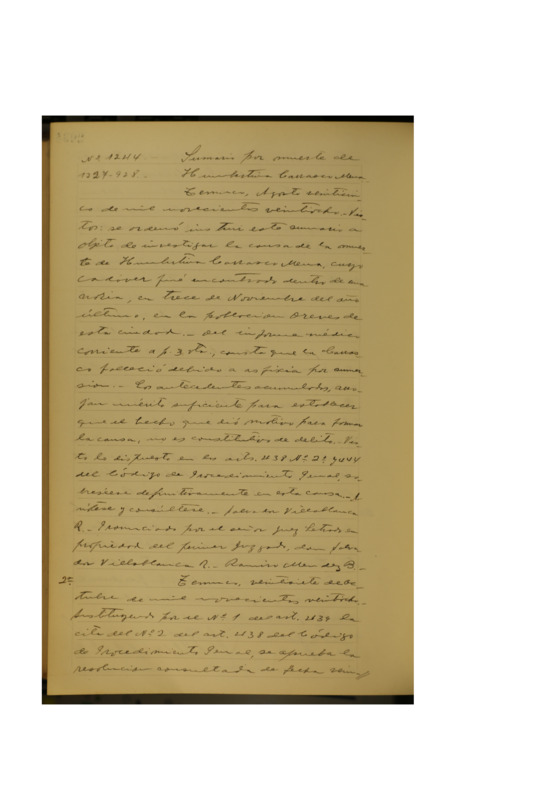 Nº 12414 Sumario por muerte de
1927-928. Humbertina Carrasco Mena
Temuco, Agosto veinticin-
co de mil novecientos veintiocho.- Vis-
tos: se ordenó instruir este sumario a
objeto de investigar la causa de la muer-
te de Humbertina Carrasco Mena, cuyo
cadaver fué encontrado dentro de una
en trece de Noviembre del año
último, en la poblacion de
esta ciudad.- Del informe médico
corriente a f. 3 vta, consta que la Carras-
co falleció debido a asfixia por sumer-
sion.- Los antecedentes acumulados,
mérito suficiente para establecer
que el hecho que dió motivo para formar
la causa, no es constitutivo de delito.- Vis-
to lo dispuesto en los arts. 438 Nº 2º y 444
del Código de Procedimiento Penal, so-
breséese definitivamente en esta causa.- A
nótese y consúltese.- Villablanca
R.- Pronunciado por el señor Juez Letrado en
propiedad del primer Juzgado, don
dor Villablanca R.- Ramiro Mendez B.-
2º Temuco, veintisiete de Oc-
tubre de mil novecientos veintiocho.-
Sustituyendo por el Nº 1 del art. 439 la
cita del Nº 2 del art. 438 del Código
de Procedimiento Penal, se aprueba la
resolucion consultada de fecha